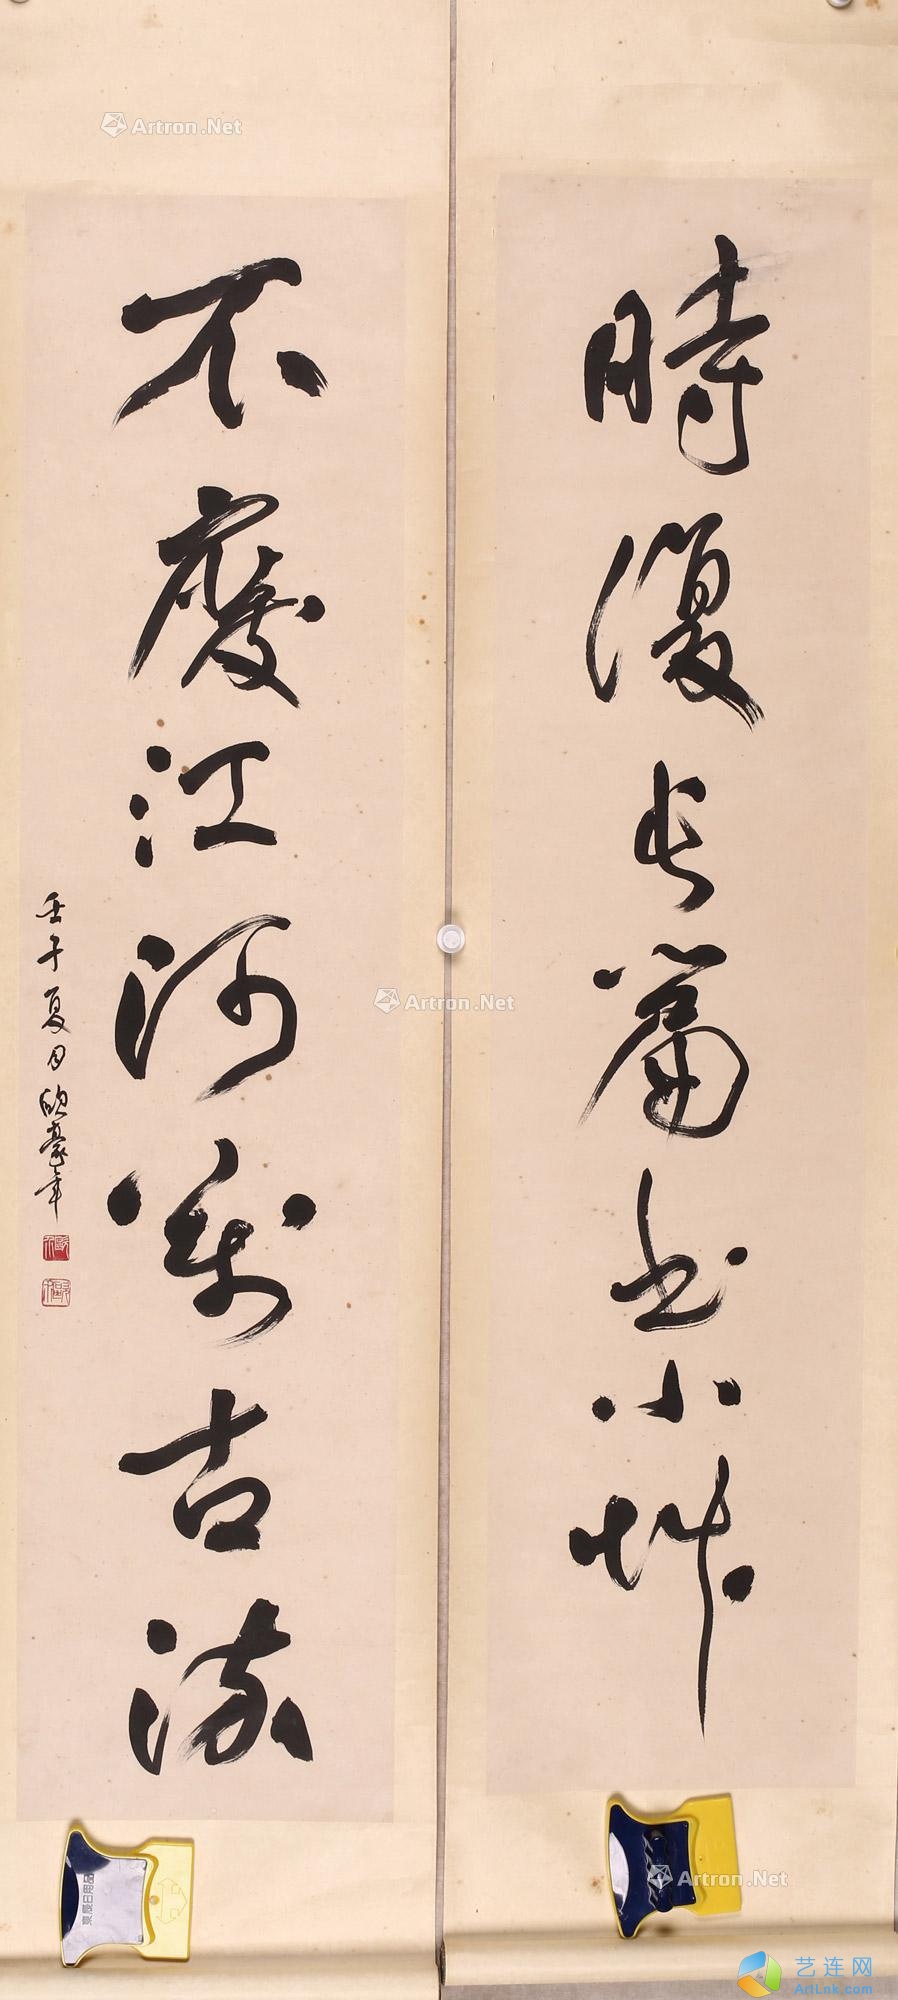 時復長篇書小草
不廢江河萬古流
壬子夏月歐豪年
Artron.Net
Artron.Net
Artron.Net
東展日用品
艺连网
ArtLnk.Com